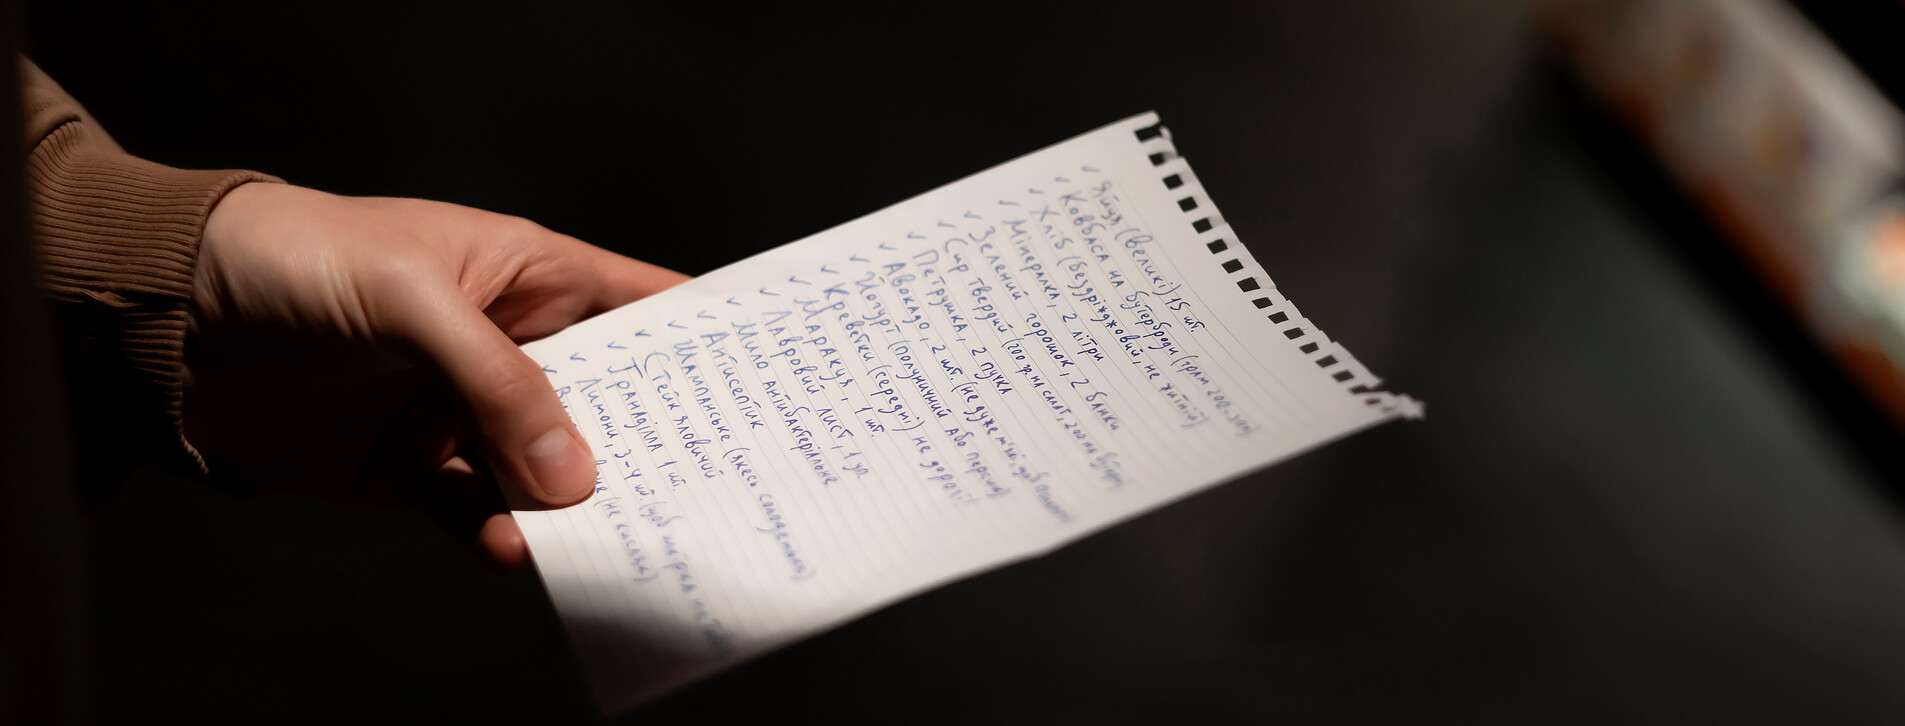 ✓ Яйця (великі) 15 шт.
✓ Ковбаса на бутерброди (грам 200-300)
✓ Хліб (бездріжджовий, не житній)
✓ Мінералка, 2 літри
✓ Зелений горошок, 2 банки
✓ Сир твердий (200 гр. на салат, 200 на бутер)
✓ Петрушка, 2 пучка
✓ Авокадо, 2 шт. (не дуже м'які, щоб
✓ Йогурт (полуничний або персик)
✓ Креветки (середні) не дорогі!
✓ Маракуя, 1 шт.
✓ Лавровий лист, 1 уп.
Мило антибактеріальне
✓ Антисептік
✓ Шампанське (якесь солоденьке)
✓ Стейк яловичий
✓ Гранаділла 1 шт.
✓ Лимони, 3-4 шт. (щоб
✓ (не кисле)